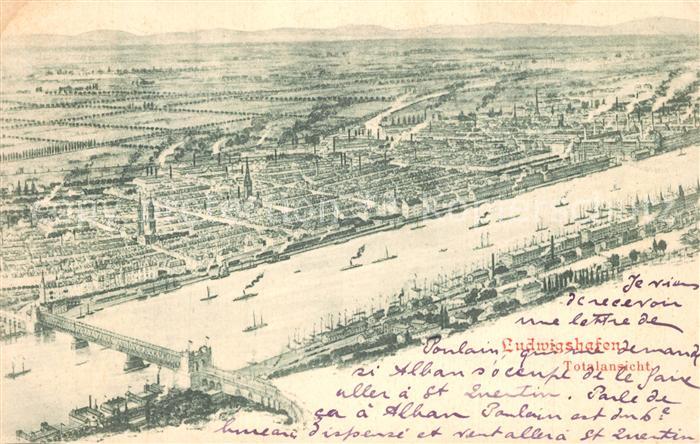 Je viens
de recevoir
une lettre de
Ludwigshafen
Poulain, qui me demande
Totalansicht.
si Alban s'occupe de le faire
aller à St Quentin. Parle de
ça à Alban Poulain est du 6e
bureau dispersé et veut aller à St Quentin